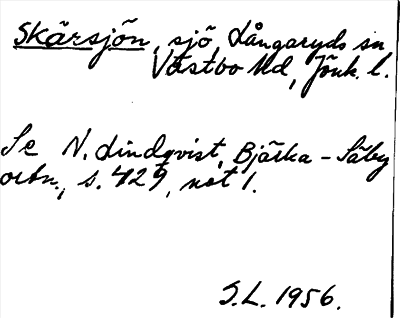 Skärsjön, sjö Långaryds sn,
Västbo hd, Jönk. l.
Se N. Lindqvist, Bjärka-Säby
ortn., s. 429, not 1.
S.L. 1956.